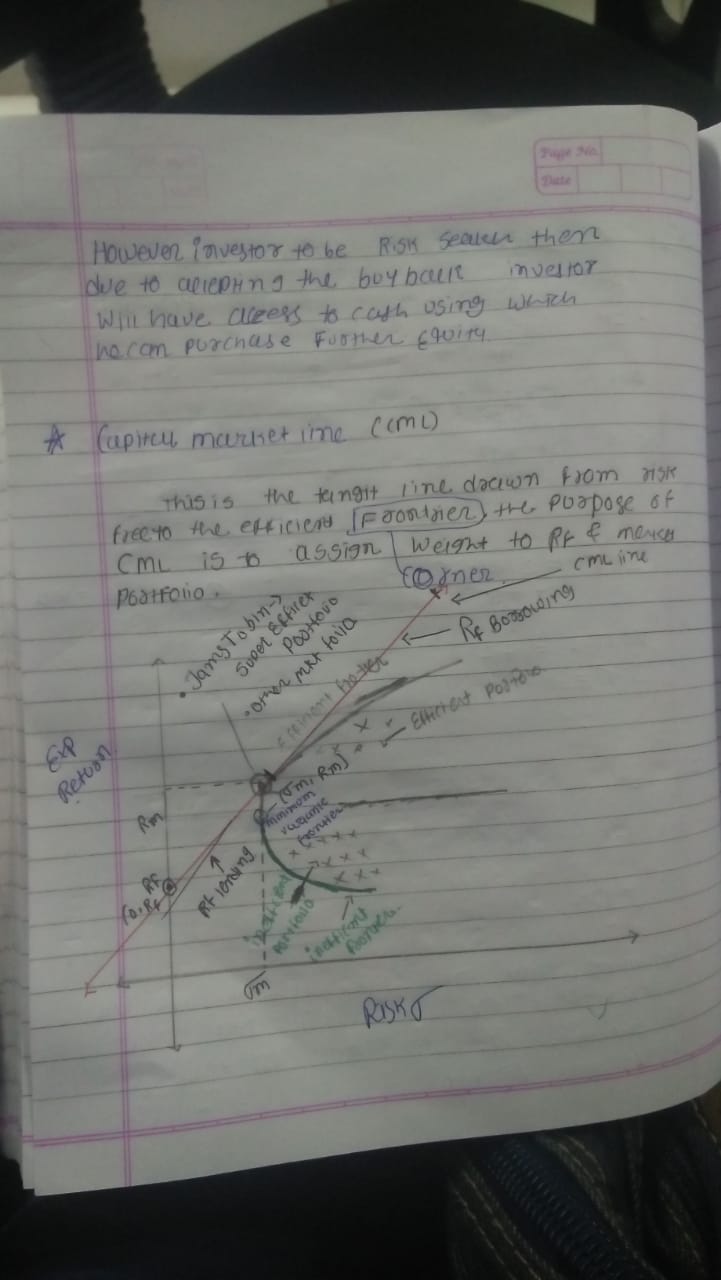 Page No.
Date
However investor to be Risk Seaker then
due to accepting the buyback investor
will have access to cash using which
he can purchase Further Equity
Capital market line (CML)
This is the tangit line drawn from risk
free to the efficient Frontier, the purpose of
CML is to assign weight to RF & market
Portfolio.
Corner
CML line
RF Borrowing
James Tobin →
Super Efficet
Portfolio
other mkt folio
Efficient
Efficient Portfolio
Exp
Return
(σm, Rm)
minimum
variance
Rm
RF lending
(0, RF
RF
inefficient
Portfolio
inefficient
Frontier
σm
Risk σ